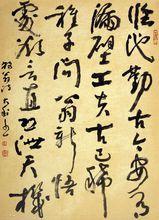 临池勤苦今安有
漏壁工夫古已稀
稚子问翁新悟
处欲言直恐泄天机
放翁诗